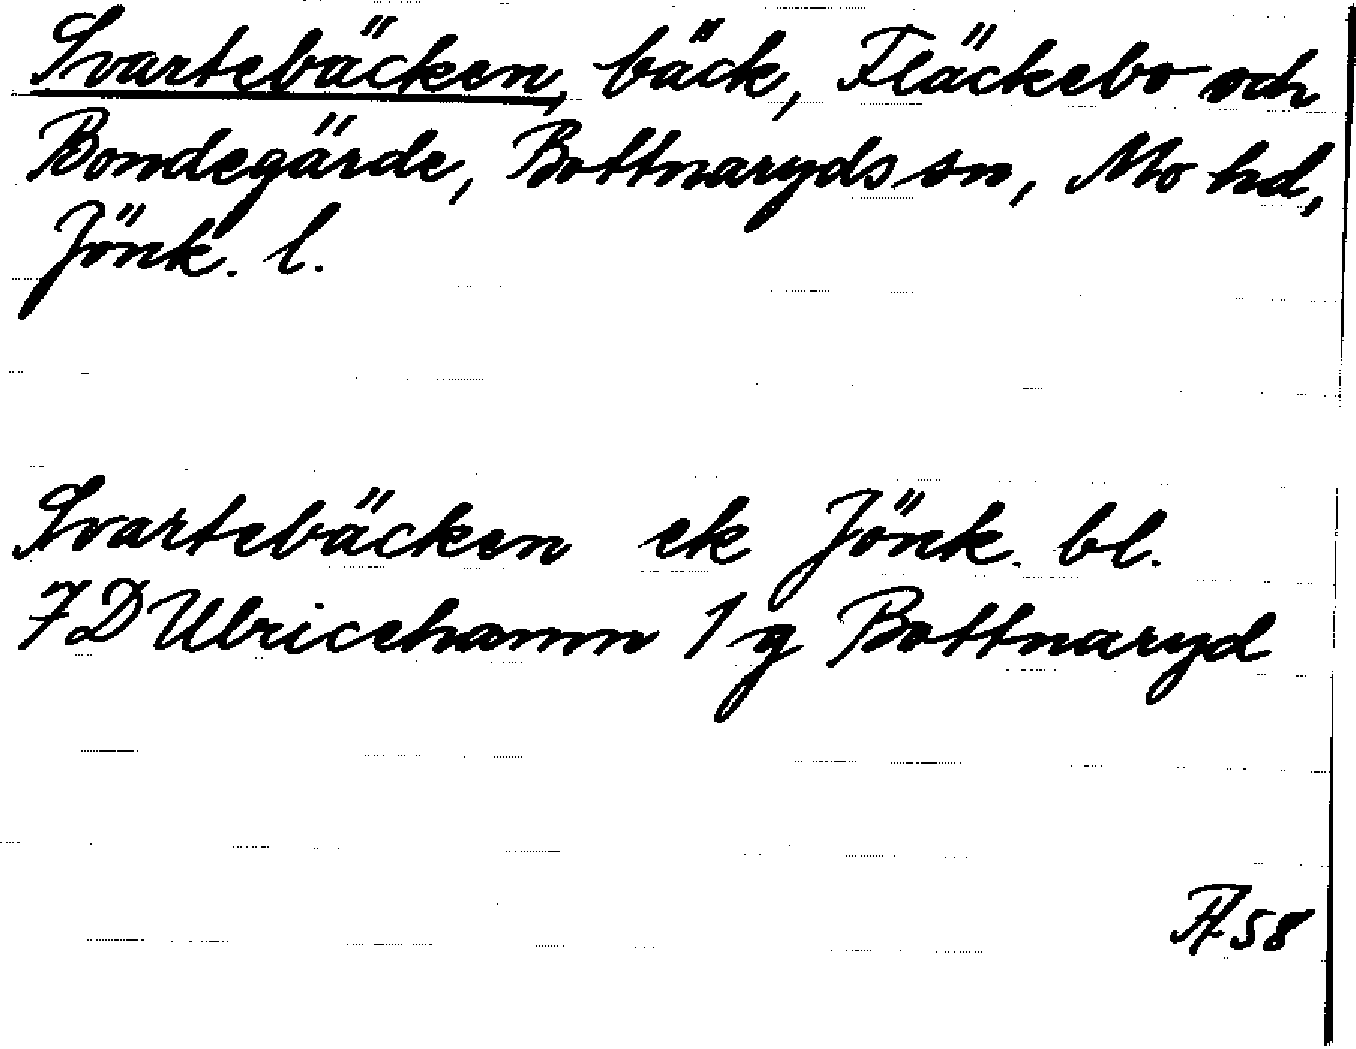 Svartebäcken, bäck, Fläckebo och
Bondegärde, Bottnaryds sn, Mo hd,
Jönk. l.
Svartebäcken ek Jönk. bl.
7D Ulricehamn 1 g Bottnaryd
58